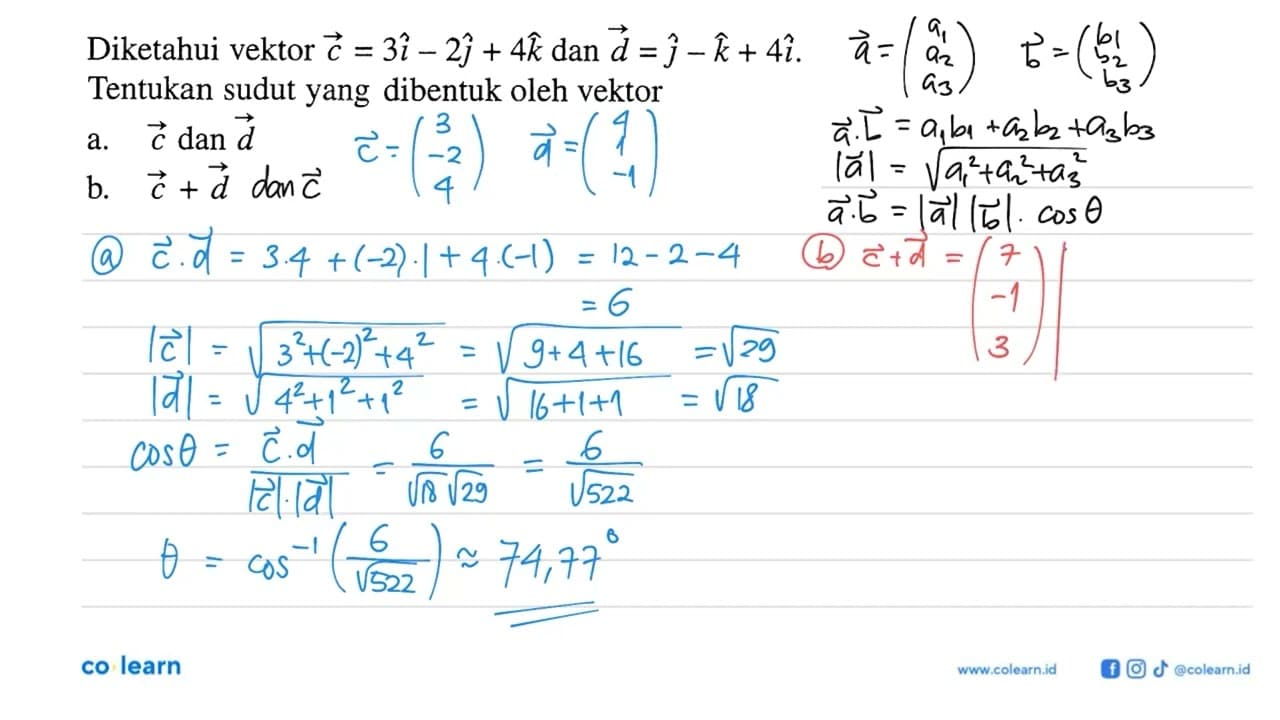 Diketahui vektor c⃗ = 3î − 2ĵ + 4k̂ dan d⃗ = ĵ − k̂ + 4î.
Tentukan sudut yang dibentuk oleh vektor
a. c⃗ dan d⃗
b. c⃗ + d⃗ dan c⃗
c⃗ = (3 −2 4) d⃗ = (4 1 −1)
a⃗ = (a₁ a₂ a₃) b⃗ = (b1 b2 b3)
a⃗.b⃗ = a₁b₁ + a₂b₂ + a₃b₃
|a⃗| = √(a₁² + a₂² + a₃²)
a⃗.b⃗ = |a⃗| |b⃗| . cos θ
ⓐ c⃗.d⃗ = 3.4 + (−2).1 + 4.(−1) = 12 − 2 − 4
= 6
|c⃗| = √(3² + (−2)² + 4²) = √(9 + 4 + 16) = √29
|d⃗| = √(4² + 1² + 1²) = √(16 + 1 + 1) = √18
cos θ = c⃗.d⃗ / |c⃗|.|d⃗| = 6 / √18 √29 = 6 / √522
θ = cos⁻¹ (6 / √522) ≈ 74,77°
ⓑ c⃗ + d⃗ = (7 −1 3)
co learn
www.colearn.id
@colearn.id